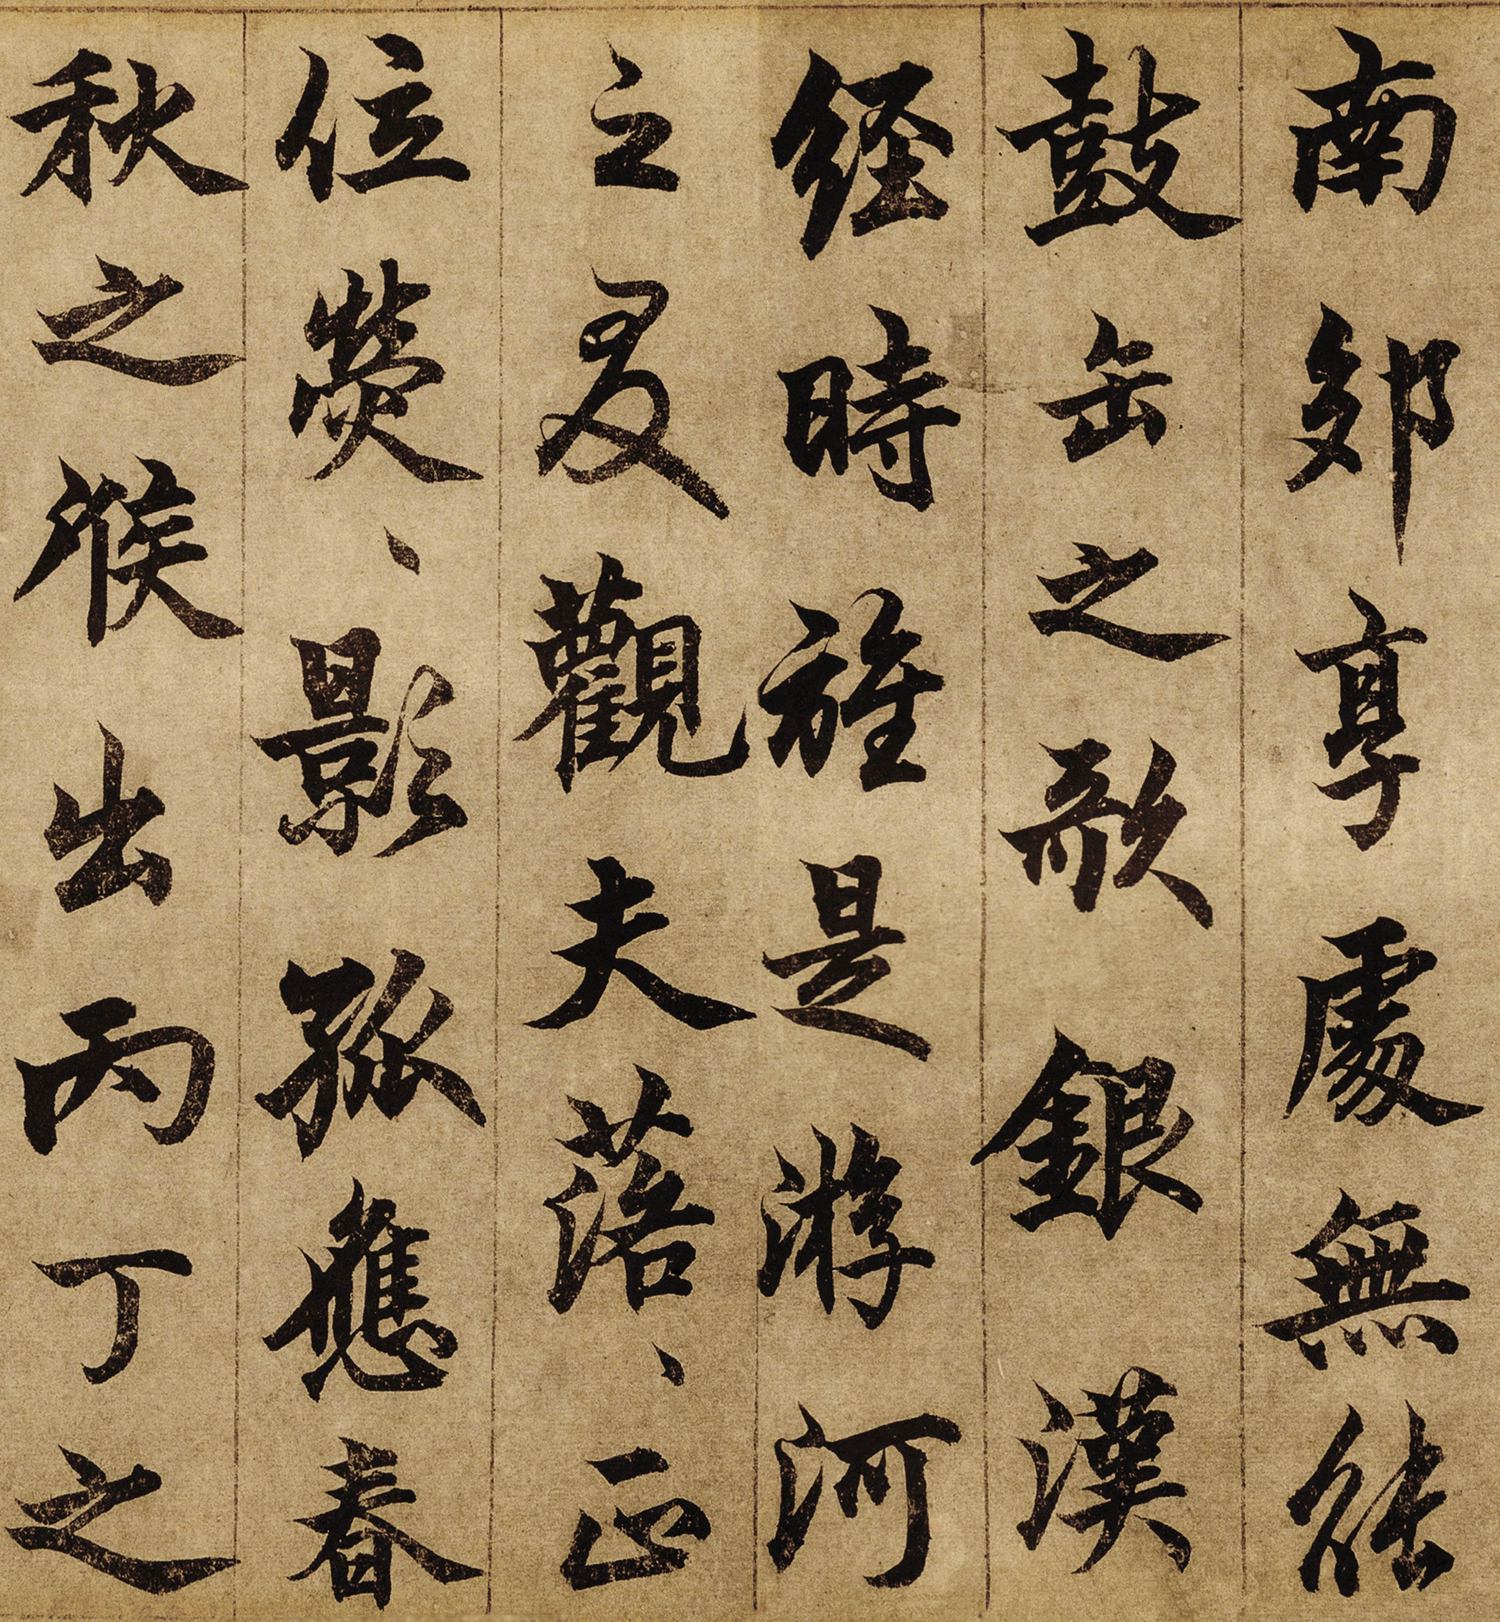 南郊享處無能
鼓缶之歌銀漢
經時誰是游河
之叟觀夫落、正
位熒、影孤應春
秋之候出丙丁之